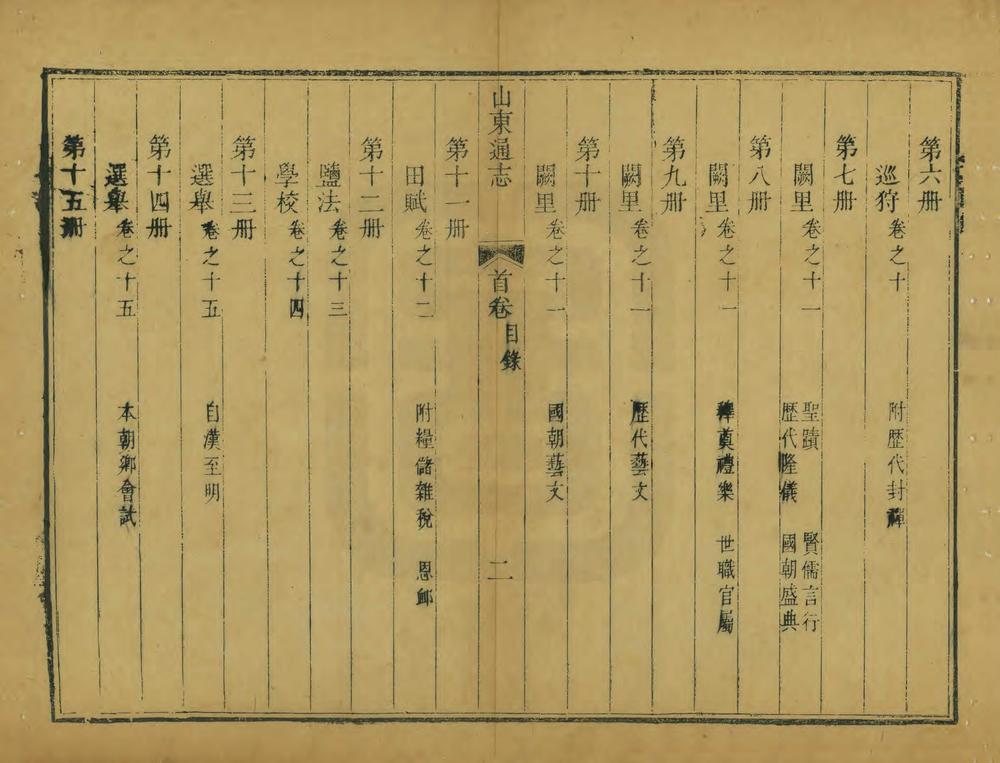 第六册
巡狩 卷之十 附歷代封禪
第七册
闕里 卷之十一 聖蹟 賢儒言行
歷代隆儀 國朝盛典
第八册
闕里 卷之十一 釋奠禮樂 世職官屬
第九册
闕里 卷之十一 歷代藝文
第十册
闕里 卷之十一 國朝藝文
山東通志 首卷 目錄 二
第十一册
田賦 卷之十二 附糧儲雜稅 恩䘏
第十二册
鹽法 卷之十三
學校 卷之十四
第十三册
選舉 卷之十五 自漢至明
第十四册
選舉 卷之十五 本朝鄉會試
第十五册